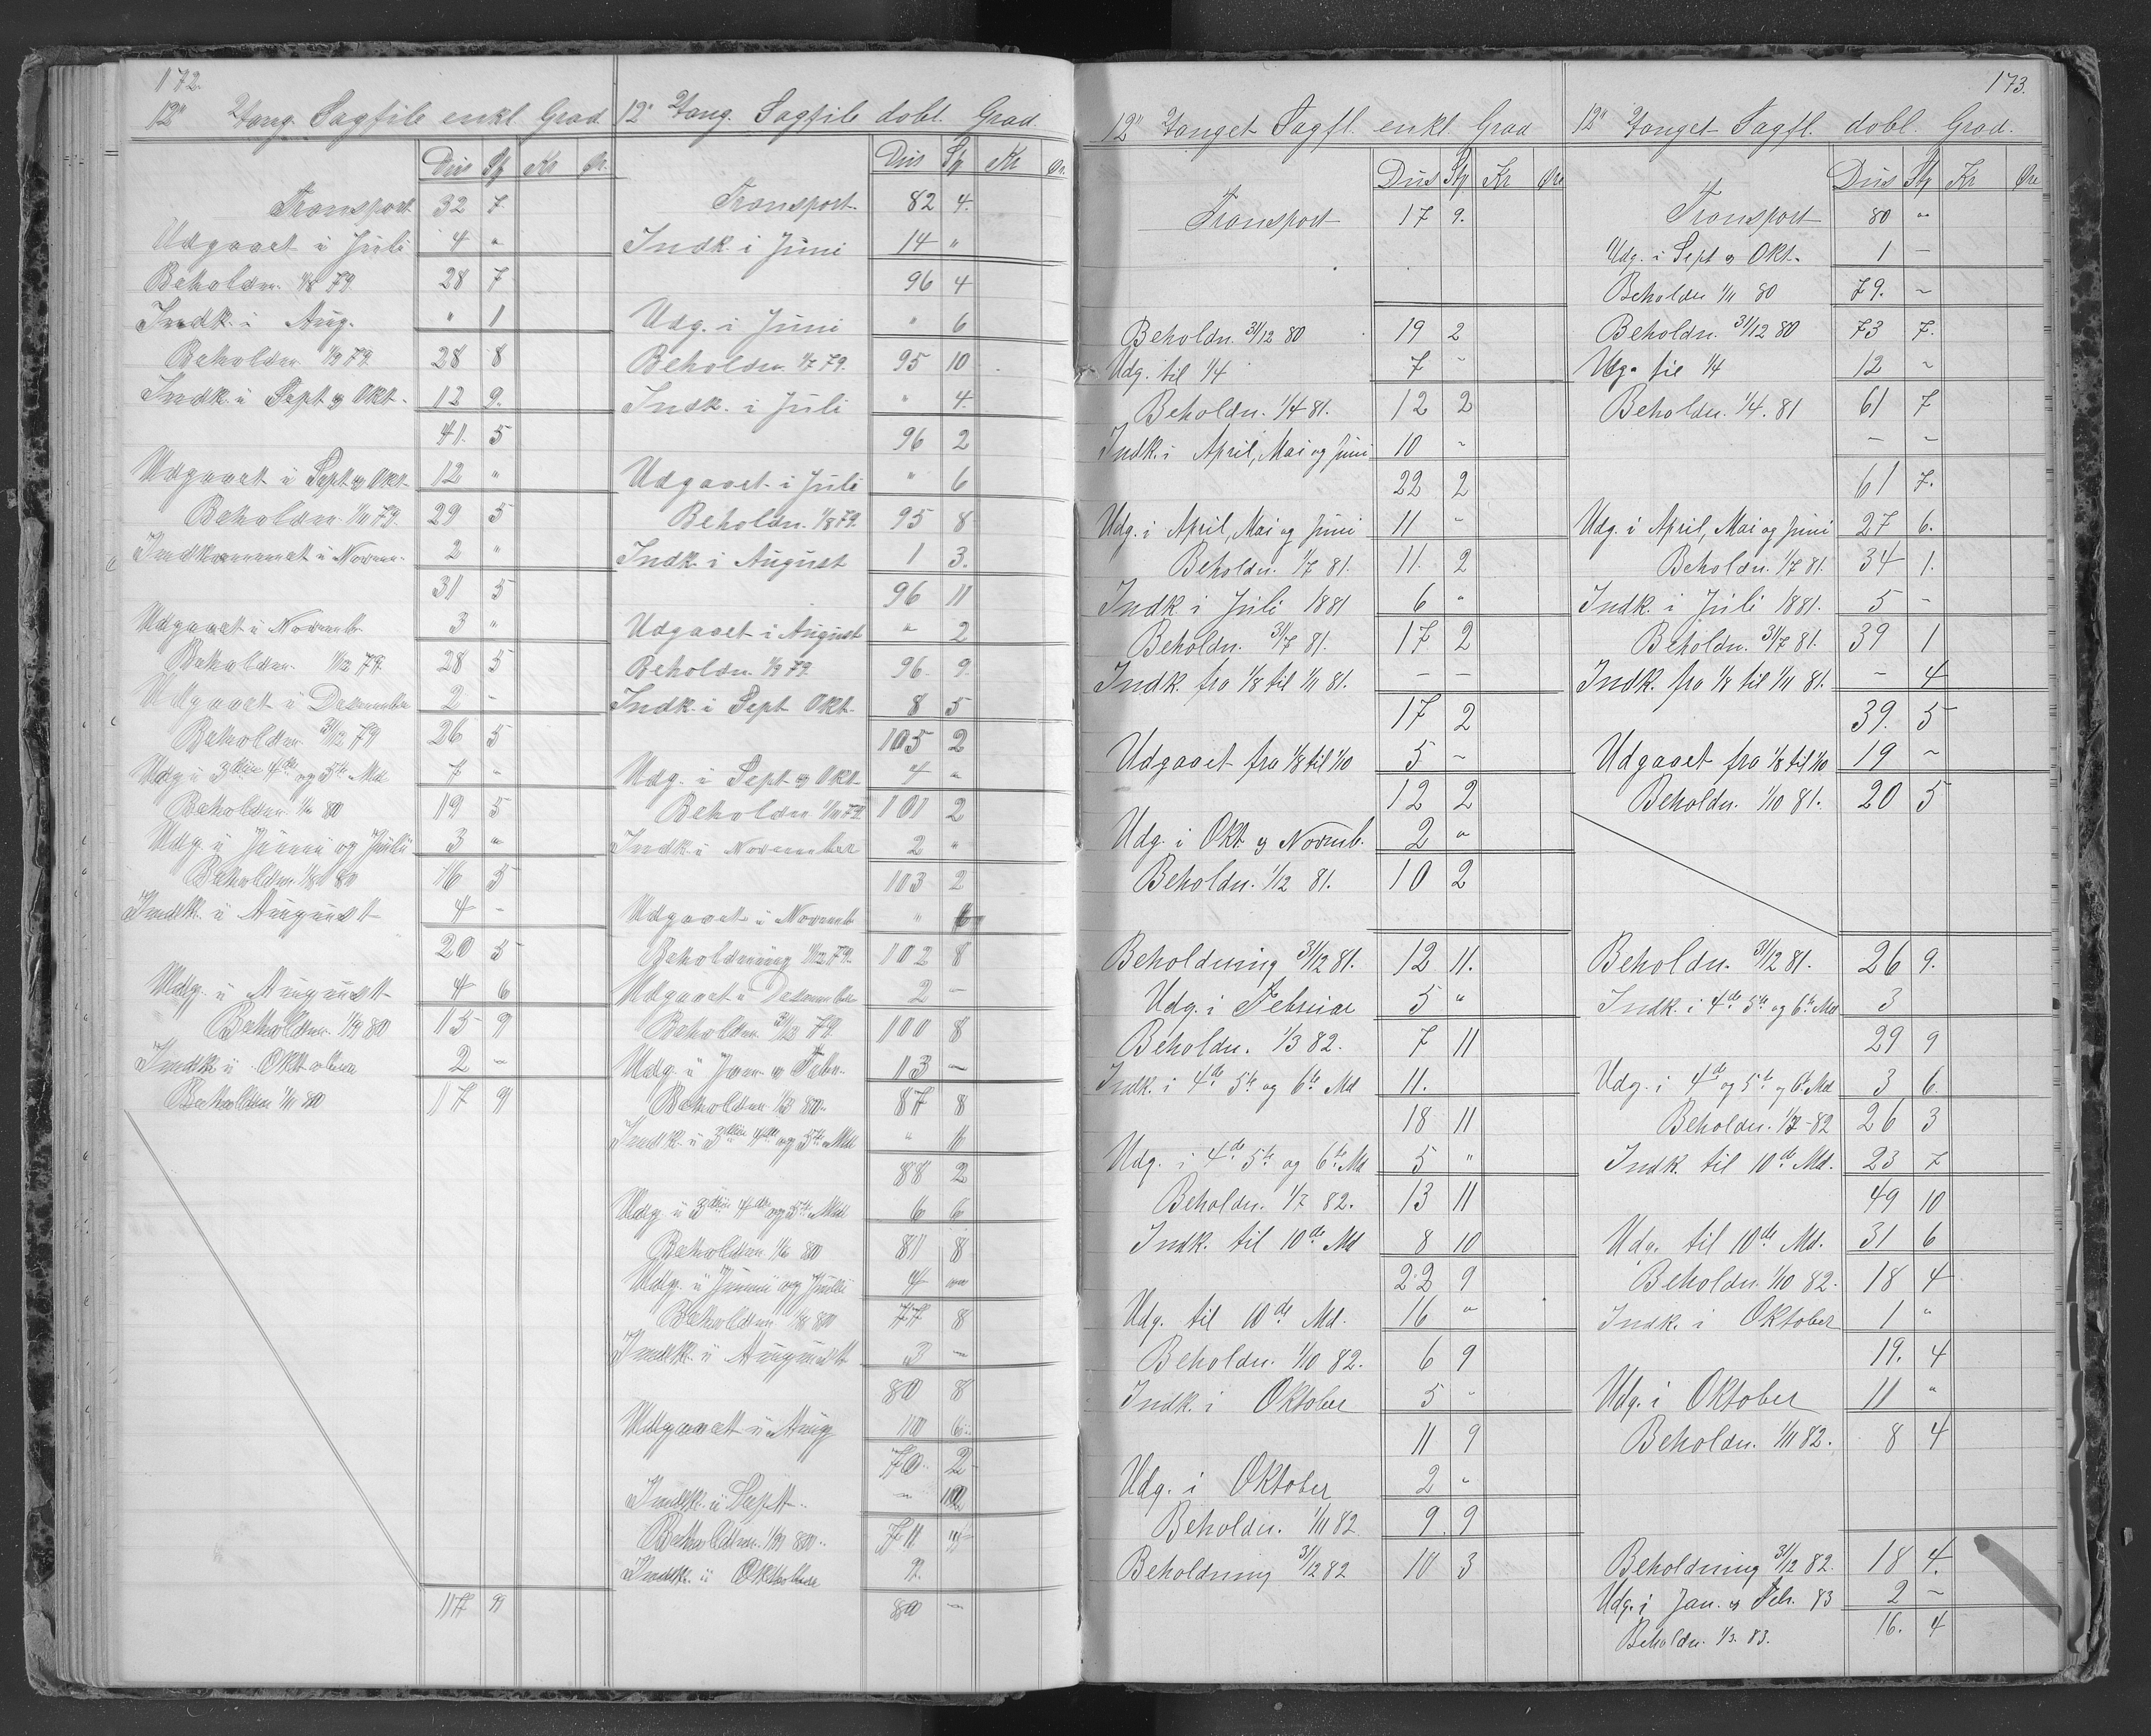 172.
12" Tang. Sagfile enkl Grad
Dus St Kr Ør.
Transport 32 7
Udgaaet i Juli 4 "
Beholdn. 1/8 79. 28 7
Indk. i Aug. " 1
Beholdn 1/9 79. 28 8
Indk. i Sept og Okt. 12 9.
41. 5
Udgaaet i Sept og Okt. 12 "
Beholdn. 1/11 79. 29 5
Indkommet i Novem. 2 "
31 5
Udgaaet i Novemb. 3 "
Beholdn. 1/12 79. 28 5
Udgaaet i Desember 2 -
Beholdn. 31/12 79 26 5
Udg i 3die 4de og 5te Md. 7 "
Beholdn. 1/6 80 19 5
Udg. i Juni og Juli 3 "
Beholdn. 1/8 80 16 5
Indk. i August 4 -
20 5
Udg. i August 4 6
Beholdn. 1/9 80 15 9
Indk i Oktober 2 -
Beholdn 1/11 80 17 9
17 9
12" Tang. Sagfile dobl. Grad.
Dus St Kr Ør.
Transport. 82 4.
Indk. i Juni 14 "
96 4
Udg. i Juni " 6
Beholdn. 1/7 79. 95 10
Indk. i Juli " 4.
96 2
Udgaaet i Juli " 6
Beholdn. 1/8 79. 95 8
Indk. i August 1 3.
96 11
Udgaaet i August " 2
Beholdn. 1/9 79. 96. 9.
Indk. i Sept Okt. 8 5
105 2
Udg. i Sept og Okt. 4 "
Beholdn 1/11 79 101 2
Indk. i November 2 "
103 2
Udgaaet i Novemb "
Beholdning 1/12 79. 102 8
Udgaaet i Desember 2 -
Beholdn. 31/12 79. 100 8
Udg. i Jan. og Febr. 13 -
Beholdn 1/3 80. 87 8
Indk. i 3die 4de og 5te Md " 6
88 2
Udg i 3die 4de og 5te Md 6 6
Beholdn. 1/6 80 81 8
Udg. i Juni og Juli 4 -
Beholdn 1/8 80 77 8
Indk. i August 3 -
80 8
Udgaaet i Aug 10 6
70 2
Indk. i Sept. - 10
Beholdn. 1/10 80.
Indk. i Oktober
80 -
173.
12" Tanget Sagfl. enkl. Grad
Dus Stp Kr Øre
Transport 17 9.
Beholdn. 31/12 80 19 2
Udg. til 1/4 7 -
Beholdn. 1/4 81. 12 2
Indk. i April, Mai og Juni 10 -
22 2
Udg. i April, Mai og Juni 11 -
Beholdn. 1/7 81. 11. 2
Indk. i Juli 1881 6 "
Beholdn. 31/7 81. 17 2
Indk. fra 1/8 til 1/11 81. - -
17 2
Udgaaet fra 1/8 til 1/10 5 -
12 2
Udg. i Okt og Novemb. 2 "
Beholdn. 1/12 81. 10 2
Beholdning 31/12 81. 12 11.
Udg. i Februar 5 "
Beholdn. 1/3 82. 7 11
Indk. i 4de 5te og 6te Md 11.
18 11
Udg. i 4de 5te og 6te Md 5 "
Beholdn. 1/7 82. 13 11
Indk. til 10de Md 8 10
22 9
Udg. til 10de Md. 16 "
Beholdn. 1/10 82. 6 9
Indk. i Oktober 5 -
11 9
Udg. i Oktober 2 "
Beholdn. 1/11 82. 9 9
Beholdning 31/12 82 10 3
12" Tanget Sagfl. dobl. Grad.
Dus Stp Kr Øre
Transport 80 "
Udg. i Sept og Okt. 1 -
Beholdn 1/11 80 79. -
Beholdn. 31/12 80 73 7.
Udg. til 1/4 12 -
Beholdn. 1/4. 81 61 7
- -
61 7.
Udg. i April, Mai og Juni 27 6.
Beholdn. 1/7 81. 34 1.
Indk. i Juli 1881. 5 -
Beholdn. 31/7 81. 39 1
Indk. fra 1/8 til 1/11 81. - 4
39. 5
Udgaaet fra 1/8 til 1/10 19 -
Beholdn. 1/10 81. 20 5
Beholdn. 31/12 81. 26 9.
Indk. i 4de 5te og 6te Md 3
29 9
Udg. i 4de og 5te og 6te Md 3 6.
Beholdn. 1/7 82 26 3
Indk. til 10de Md. 23 7
49 10
Udg. til 10de Md. 31 6
Beholdn. 1/10 82. 18 4
Indk. i Oktober 1 "
19. 4
Udg. i Oktober 11 "
Beholdn. 1/11 82. 8 4
Beholdning 31/12 82. 18 4.
Udg. i Jan. og Feb. 83 2 -
Beholdn. 1/3. 83. 16. 4